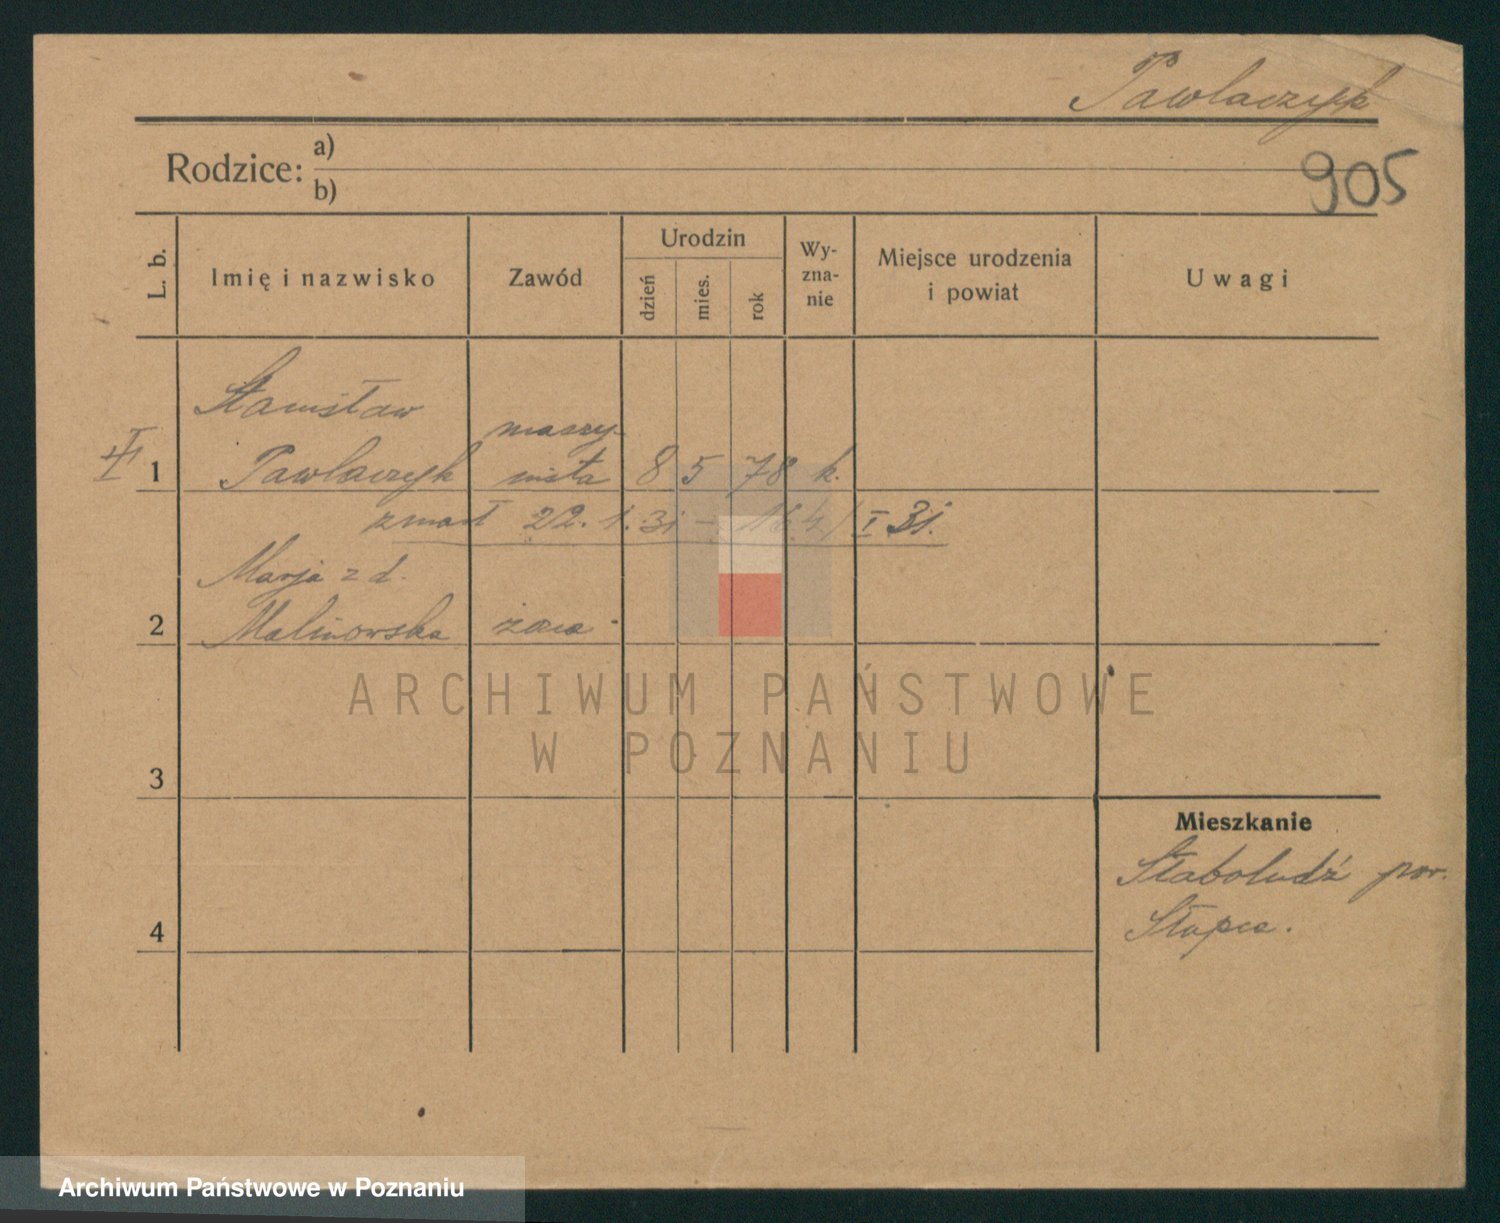 Pawlaczyk
Rodzice: a)
b)
905
L. b.
Imię i nazwisko
Zawód
Urodzin
dzień
mies.
rok
Wy-
zna-
nie
Miejsce urodzenia
i powiat
Uwagi
Stanisław
maszy-
1 Pawlaczyk nista 8 5 78 k.
zmarł 22. 1. 31 – I 31.
Marja z d.
2 Malinowska żona
ARCHIWUM PAŃSTWOWE
W POZNANIU
3
Mieszkanie
Słaboludź pow.
Słupca.
4
Archiwum Państwowe w Poznaniu